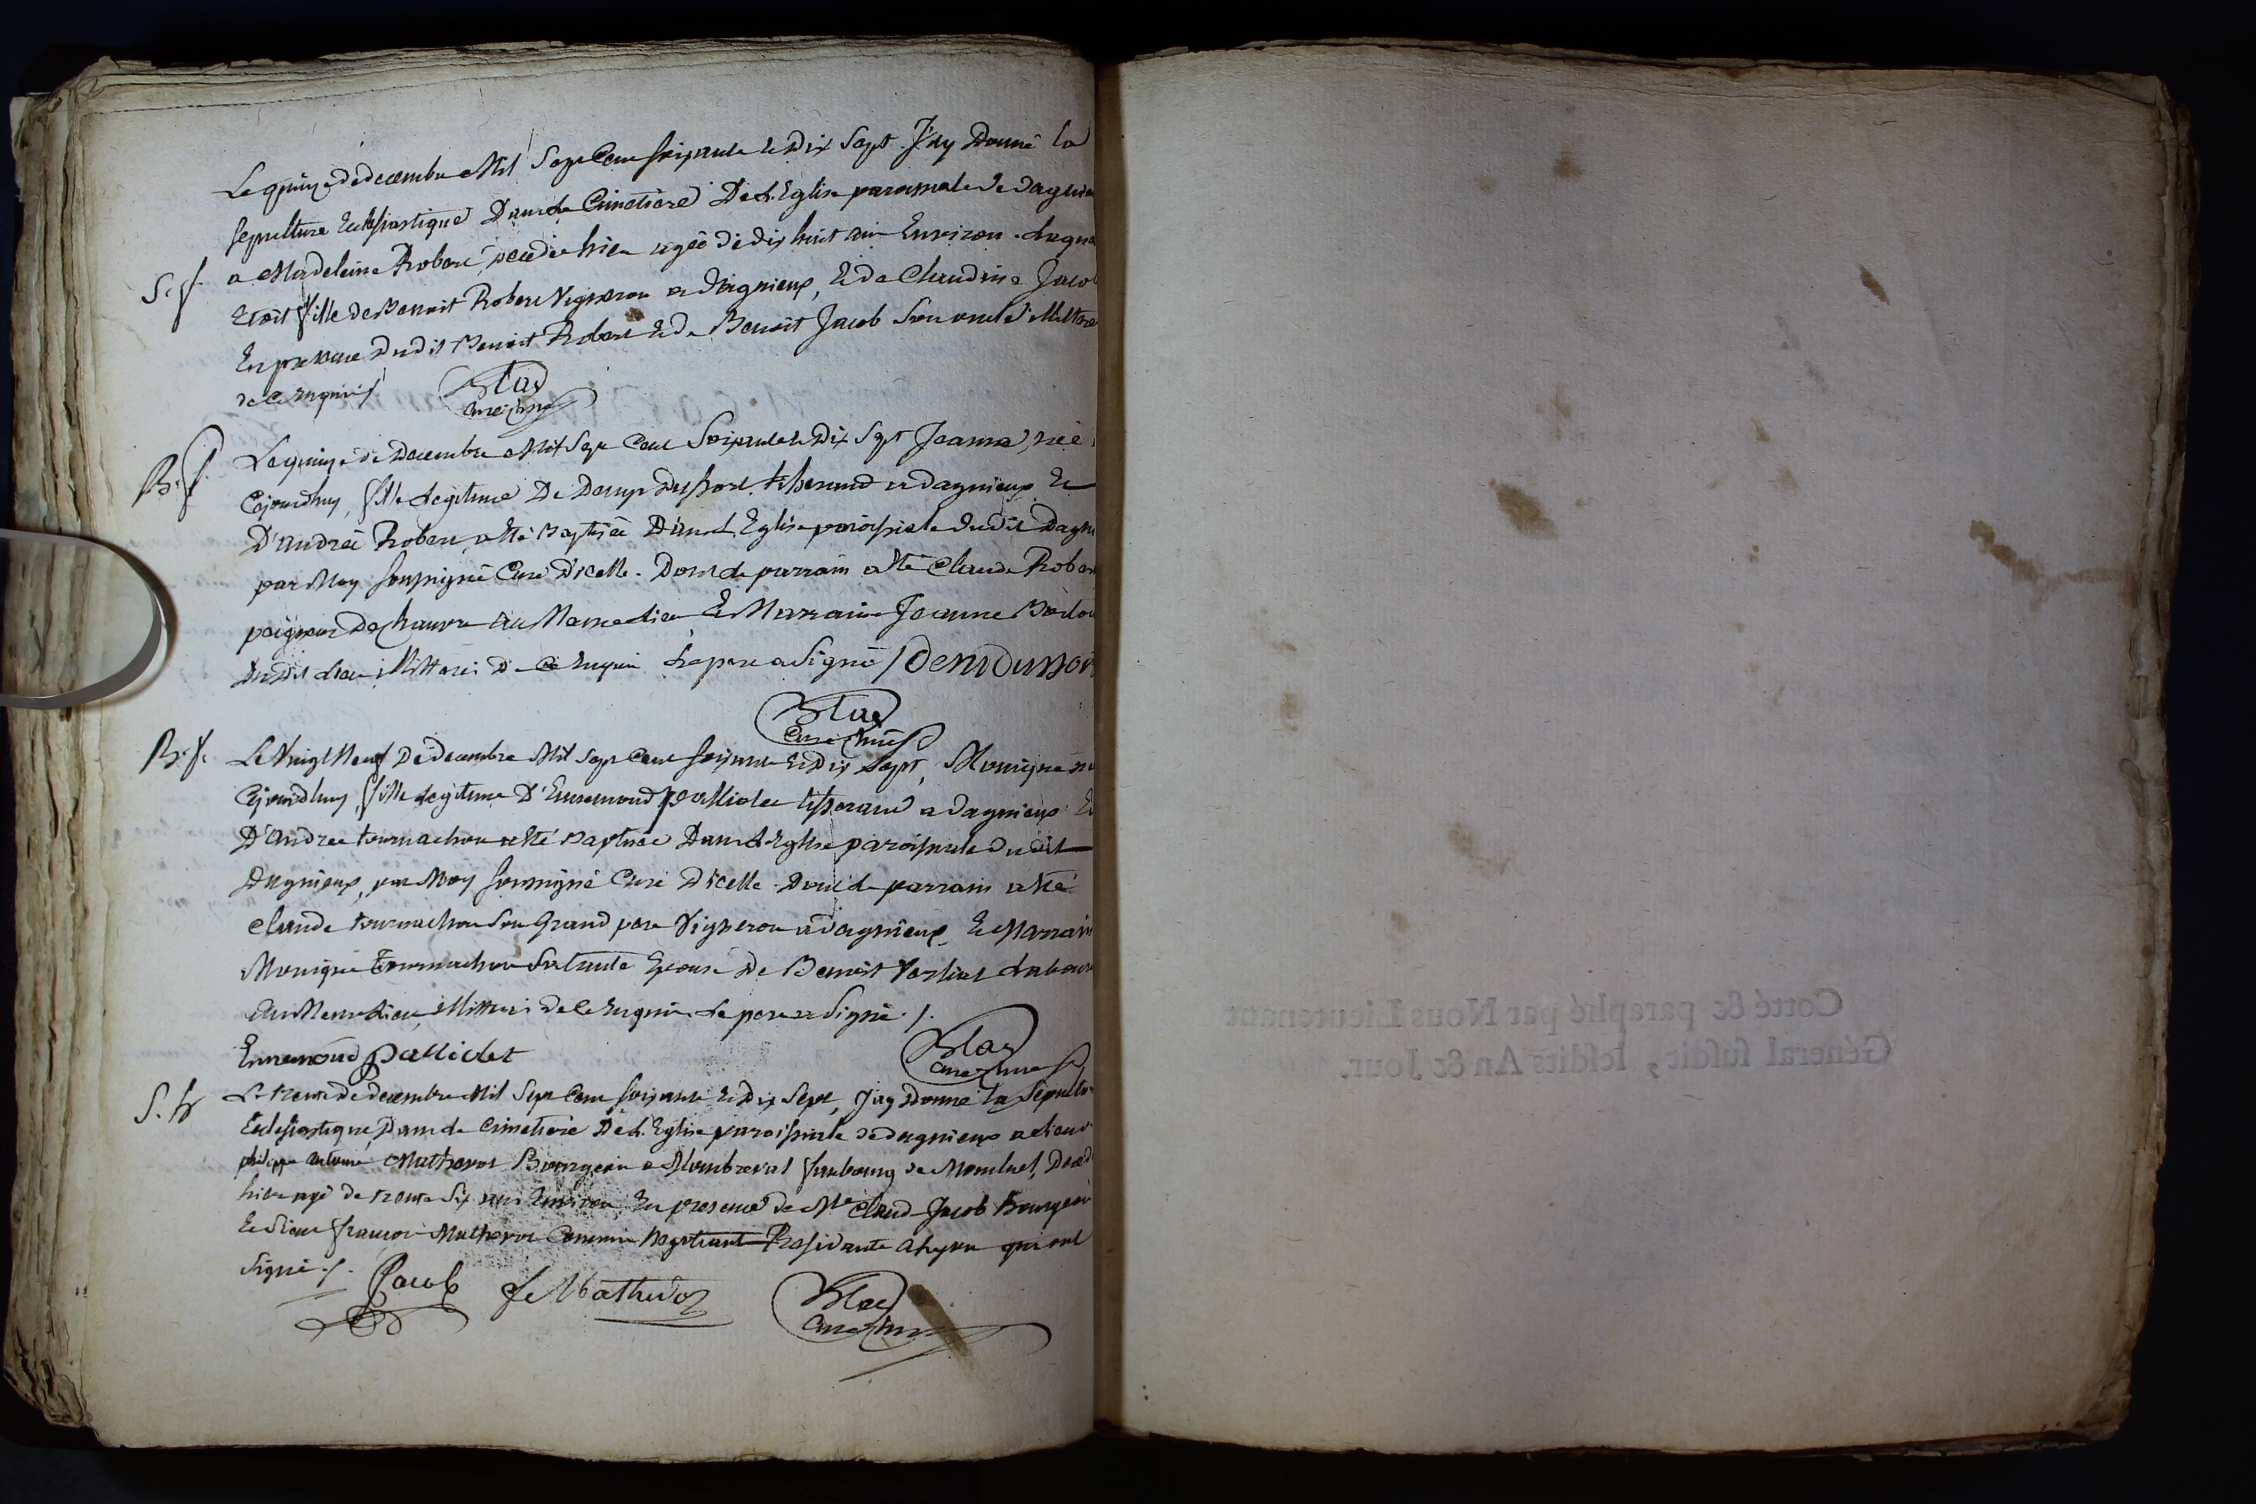 Le quinze de decembre Mil Sept Cent soixante et Dix Sept J'ay Donné La
sepulture Ecclesiastique Dans le Cimetiere De L'Eglise paroissiale de dagnieu
S. f. a Madeleine Robert, decedée hier agée de dix huit ans Environ. Laque
Etoit fille de Benoit Robert Vigneron a dagnieux, Et de Claudine Jacob
En presence Dudit Benoit Robert Et De Benoit Jacob Son oncle Illitterés
de ce Enquis /
Blac
Curé
B. f. Le quinze de Decembre Mil Sept Cent Soixante et Dix Sept Jeanne, née
Cejourdhuy, fille Legitime De Denys Dussort tisserand a dagnieux Et
D'andrée Robert, a Eté Baptisée Dans L'Eglise paroissiale dudit Dagni
par Moy soussigné Curé D'icelle. Dont le parrain a Eté Claude Robert
peigneur De chanvre Au Meme Lieu Et Marraine Jeanne
Dudit Lieu Illitteréi De Ce Enquis Le pere a Signé / Deni Dussor
Blac
Curé
B. f. Le Vingt Neuf De decembre Mil Sept Cent soixante Et Dix Sept, Monique née
Cejourdhuy, fille Legitime D'Ennemond Palliolet tisserand a dagnieux Et
D'andrée tournachon a Eté Baptisée Dans L'Eglise paroissiale dudit
Dagnieux, par Moy soussigné Curé D'icelle. Dont le parrain a Eté
Claude tournachon Son Grand pere Vigneron a dagnieux, Et Marrain
Monique Tournachon Sa tante Epouse De Benoit Labour
Au Meme Lieu, Illitterei De Ce Enquis. Le pere a Signé. /.
Ennemond Palliolet
Blac
Curé
S. h Le trente De decembre Mil Sept Cent soixante Et Dix Sept, J'ay Donné La Sepultur
Ecclesiastique Dans le Cimetiere De L'Eglise paroissiale de dagnieux a Sieur
philippe antoine Matheron Bourgeois a faubourg de Montluel, Deced
hier agé de trente Six ans Environ, En presence de Mre Claude Jacob Bourgeoi
Et Sieur françois Matheron Negotiant Residante a Lyon qui ont
Signé. /.
Jacob
Blac
Curé
Cotté & paraphé par Nous Lieutenant
Général susdit, lesdits An & Jour.